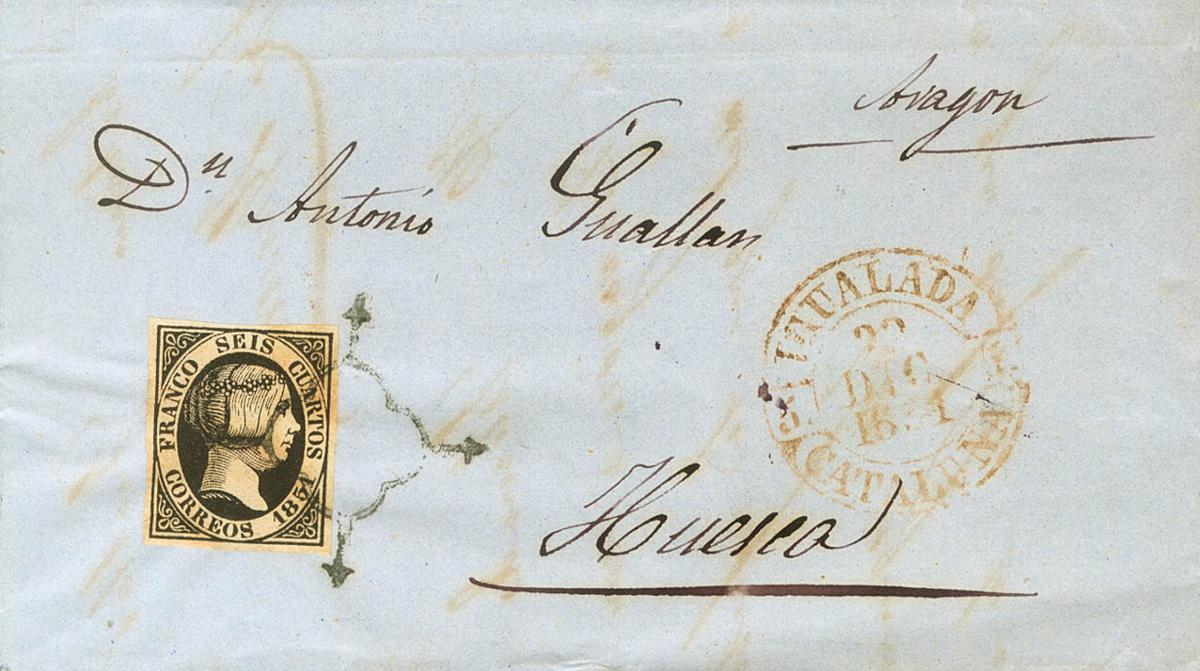 Aragon
Dn Antonio Guallar
FRANCO SEIS CUARTOS
CORREOS 1851
IGUALADA
DIC
1851
CATALUÑA
Huesca